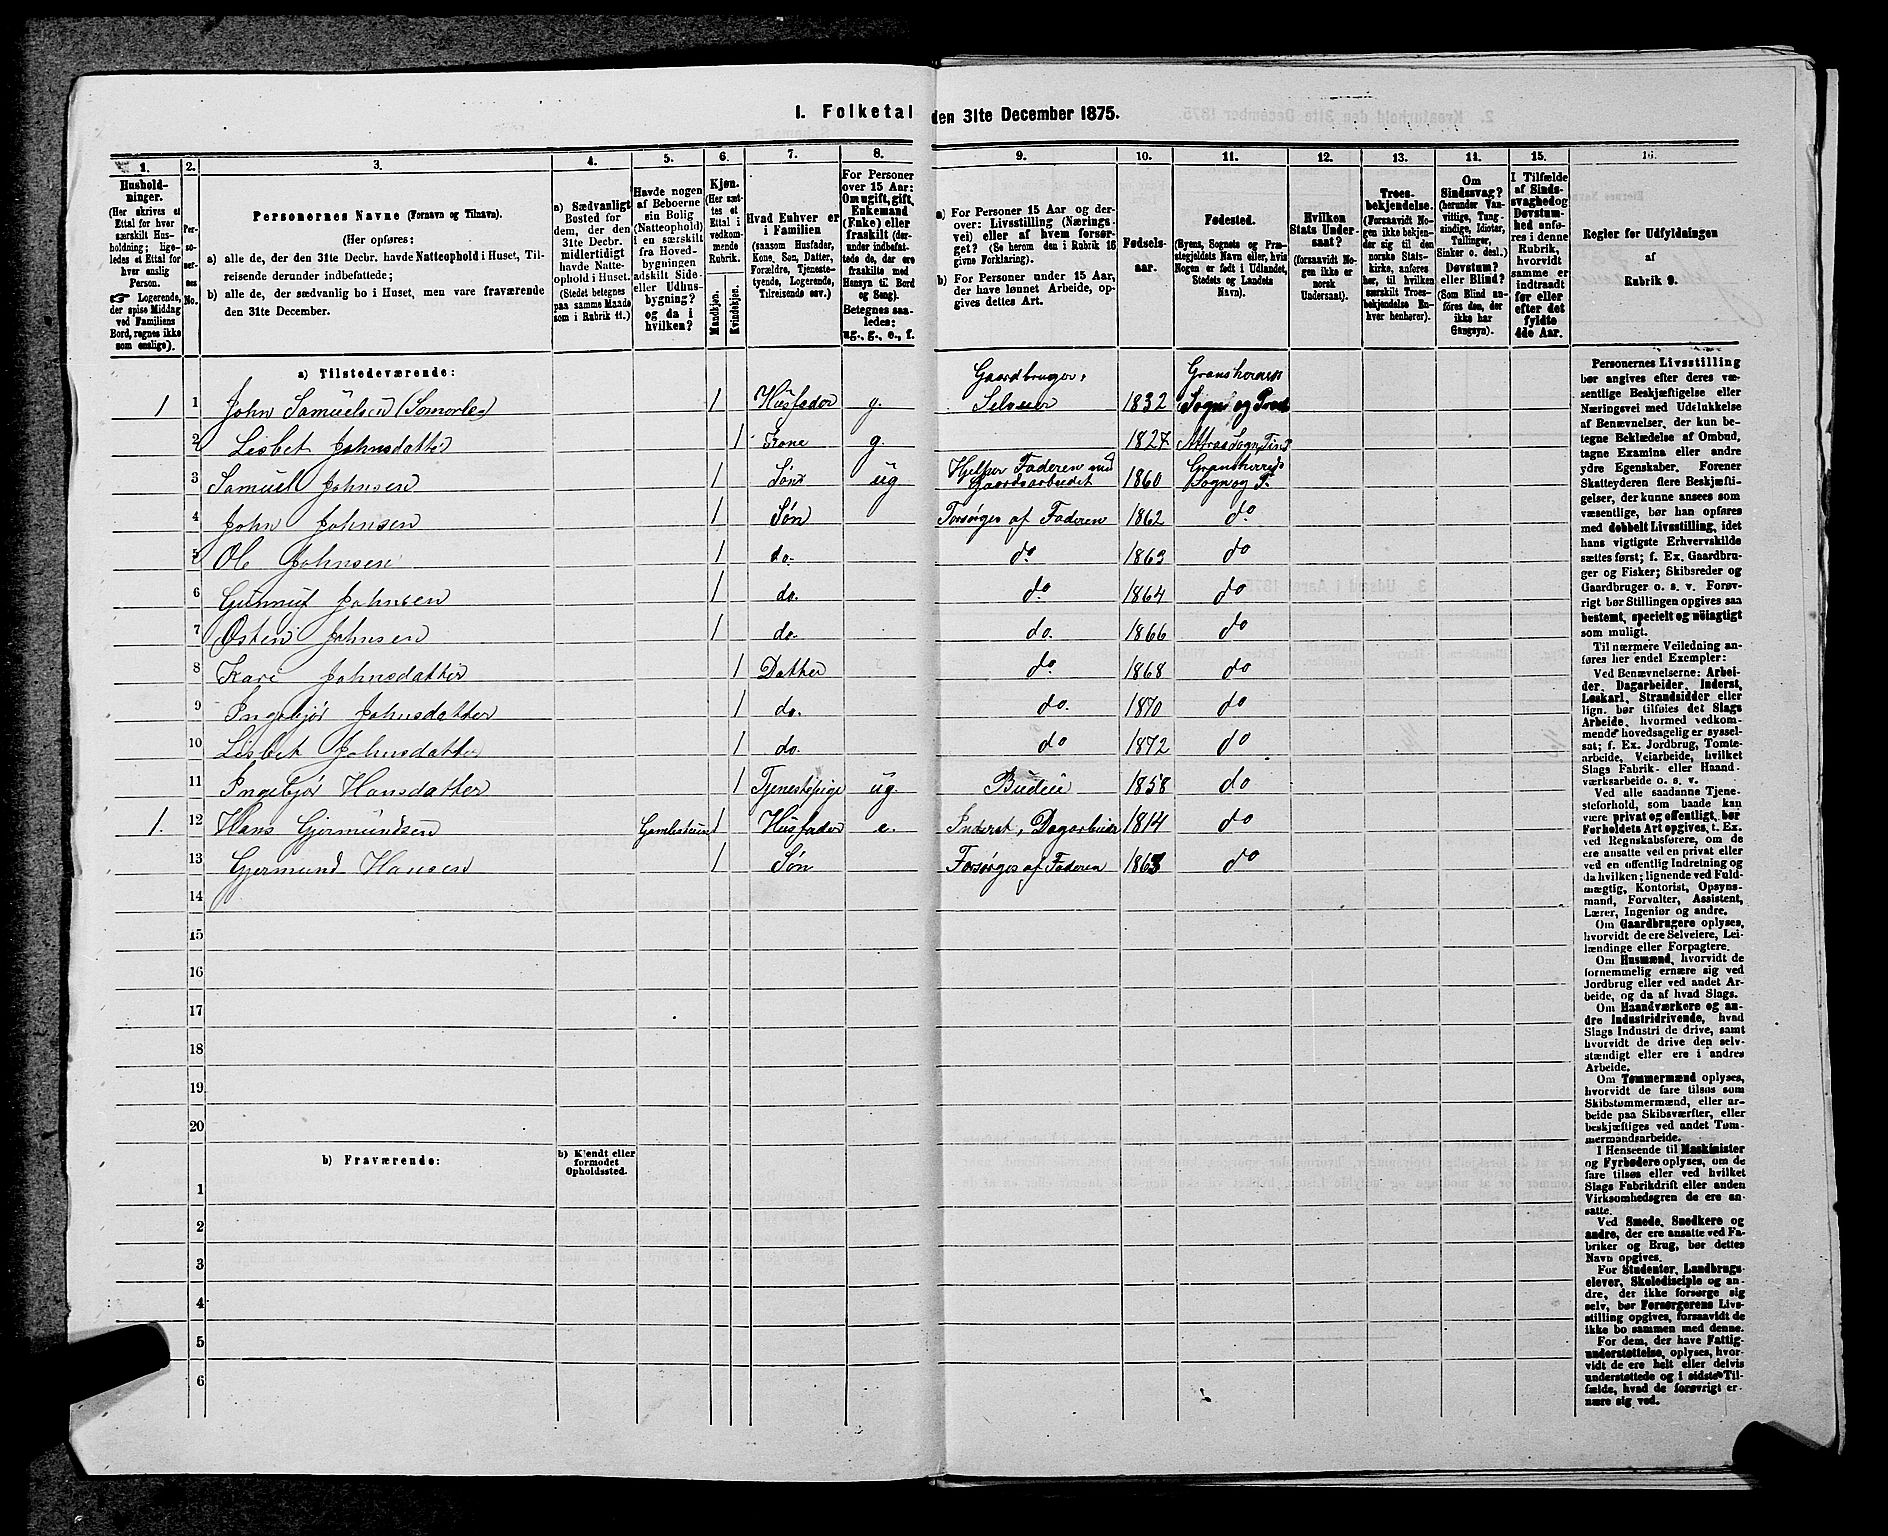 I. Folketal den 31te December 1875.
1. 2. 3. 4. 5. 6. 7. 8. 9. 10. 11. 12. 13. 14. 15. 16.
Hushold-
ninger.
(Her skrives et
Ettal for hver
særskilt Hus-
holdning; lige-
ledes et Ettal for
hver enslig
Person.
☞ Logerende,
der spise Middag
ved Familiens
Bord, regnes ikke
som enslige).
Per-
so-
ner-
nes
No.
Personernes Navne (Fornavn og Tilnavn).
(Her opføres:
a) alle de, der den 31te Decbr. havde Natteophold i Huset, Til-
reisende derunder indbefattede;
b) alle de, der sædvanlig bo i Huset, men vare fraværende
den 31te December.
a) Sædvanligt
Bosted for
dem, der den
31te Decbr.
midlertidigt
havde Natte-
ophold i Huset.
(Stedet betegnes
paa samme Maade
som i Rubrik 11.)
Havde nogen
af Beboerne
sin Bolig
(Natteophold)
i en særskilt
fra Hoved-
bygningen
adskilt Side-
eller Udhus-
bygning?
og da i
hvilken?
Kjøn.
(Her sæt-
tes et
Ettal i
vedkom-
mende
Rubrik.
Mandkjøn.
Kvindekjøn.
Hvad Enhver er
i Familien
(saasom Husfader,
Kone, Søn, Datter,
Forældre, Tjeneste-
tyende, Logerende,
Tilreisende osv.)
For Personer
over 15 Aar:
Om ugift, gift,
Enkemand
(Enke) eller
fraskilt (der-
under indbefat-
tede de, der ere
fraskilte med
Hensyn til Bord
og Seng).
Betegnes saa-
ledes:
ug., g., e., f.
a) For Personer 15 Aar og der-
over: Livsstilling (Nærings-
vei) eller af hvem forsør-
get? (Se herom den i Rubrik 16
givne Forklaring).
b) For Personer under 15 Aar,
der have lønnet Arbeide, op-
gives dettes Art.
Fødsels-
aar.
Fødested.
(Byens, Sognets og Præ-
stegjeldets Navn eller, hvis
Nogen er født i Udlandet,
Stedets og Landets
Navn).
Hvilken
Stats Under-
saat?
(forsaavidt No-
gen ikke er
norsk
Undersaat).
Troes-
bekjendelse.
(Forsaavidt No-
gen ikke bekjen-
der sig til den
norske Stats-
kirke, anføres
her, til hvilken
særskilt Troes-
bekjendelse En-
hver henhører).
Om
Sindssvag?
(herunder Van-
vittige, Tung-
sindige, Idioter,
Tullinger,
Sinker o. desl.).
Døvstum?
eller Blind?
(Som Blind an-
føres den, der
ikke har
Gangsyn).
I Tilfælde
af Sinds-
svaghed og
Døvstum-
hed anfø-
res i denne
Rubrik,
hvorvidt
samme er
indtraadt
før eller
efter det
fyldte
4de Aar.
Regler for Udfyldningen
af
Rubrik 9.
a) Tilstedeværende:
1 1 John Samuelsen (Somorle) 1 Husfader g. Gaardbruger, Selveier 1832 Gransherred Sogn og Præst
2 Lisbet Johnsdatter 1 Kone g. 1827 Attraa Sogn, Tin P
3 Samuel Johnsen 1 Søn ug Hjelper Faderen med Gaardsarbeidet 1860 Gransherreds Sogn og P.
4 John Johnsen 1 Søn Forsørges af Faderen 1862 do
5 Ole Johnsen 1 do. do. 1863 do
6 Gunnuf Johnsen 1 do. do 1864 do
7 Østen Johnsen 1 do. do. 1866 do
8 Kari Johnsdatter 1 Datter do. 1868 do
9 Ingebjør Johnsdatter 1 do. do. 1870 do
10 Lisbet Johnsdatter 1 do. do 1872 do
11 Ingebjør Hansdatter 1 Tjenestepige ug. Budeie 1858 do
1. 12 Hans Gjermundsen Gamlestuen 1 Husfader e. Inderst, Dagarbeider 1814 do
13 Gjermund Hansen 1 Søn Forsørges af Faderen 1863 do
14
15
16
17
18
19
20
b) Fraværende:
b) Kjendt eller
formodet
Opholdssted.
1
2
3
4
5
6
Personernes Livsstilling
bør angives efter deres væ-
sentlige Beskjæftigelse eller
Næringsvei med Udelukkelse
af Benævnelser, der kun be-
tegne Beklædelse af Ombud,
tagne Examina eller andre
ydre Egenskaber. Forener
Skatteyderen flere Beskjæfti-
gelser, der kunne ansees som
væsentlige, bør han opføres
med dobbelt Livsstilling, idet
hans vigtigste Erhvervskilde
sættes først; f. Ex. Gaardbru-
ger og Fisker; Skibsreder og
Gaardbruger o. s. v. Forøv-
rigt bør Stillingen opgives saa
bestemt, specielt og nöiagtigt
som muligt.
Til nærmere Veiledning an-
føres her endel Exempler:
Ved Benævnelserne: Arbei-
der, Dagarbeider, Inderst,
Løskarl, Strandsidder eller
lign. bør tilføies det Slags
Arbeide, hvormed vedkom-
mende hovedsagelig er syssel-
sat; f. Ex. Jordbrug, Tomte-
arbeide, Veiarbeide, hvilket
Slags Fabrik- eller Haand-
værksarbeide o. s. v.
Ved alle saadanne Tjene-
steforhold, som baade kan
være privat og offentlig, bør
Forholdets Art opgives, t. Ex.
ved Regnskabsførere, om de
ere ansatte ved en privat eller
ved en offentlig Indretning og
da hvilken; lignende ved Fuld-
mægtig, Kontorist, Opsyns-
mand, Forvalter, Assistent,
Lærer, Ingeniør og andre.
Om Gaardbrugere oplyses,
hvorvidt de ere Selveiere, Lei-
lændinge eller Forpagtere.
Om Husmænd, hvorvidt de
fornemmelig ernære sig ved
Jordbrug eller ved andet Ar-
beide, og da af hvad Slags.
Om Haandværkere og an-
dre Industridrivende, hvad
Slags Industri de drive, samt
hvorvidt de drive den selv-
stændigt eller ere i andres
Arbeide.
Om Tømmermænd oplyses,
hvorvidt de fare tilsøs som
Skibstømmermænd, eller ar-
beide paa Skibsværfter, eller
beskjæftiges ved andet Tøm-
mermandsarbeide.
I Henseende til Maskinister
og Fyrbødere oplyses, om de
fare tilsøs eller ved hvilket
Slags Fabrikdrift eller anden
Virksomhedsgren de ere an-
satte.
Ved Smede, Snedkere og
andre, der ere ansatte ved Fa-
briker og Brug, bør dettes
Navn opgives.
For Studenter, Landbrugs-
elever, Skoledisciple og an-
dre, der ikke forsørge sig
selv, bør Forsørgerens Livs-
stilling opgives, forsaavidt de
ikke bo sammen med denne.
For dem, der have Fattig-
understøttelse, oplyses, hvor-
vidt de ere helt eller delvis
understøttede og i sidste Til-
fælde, hvad de forøvrigt er-
nære sig ved.